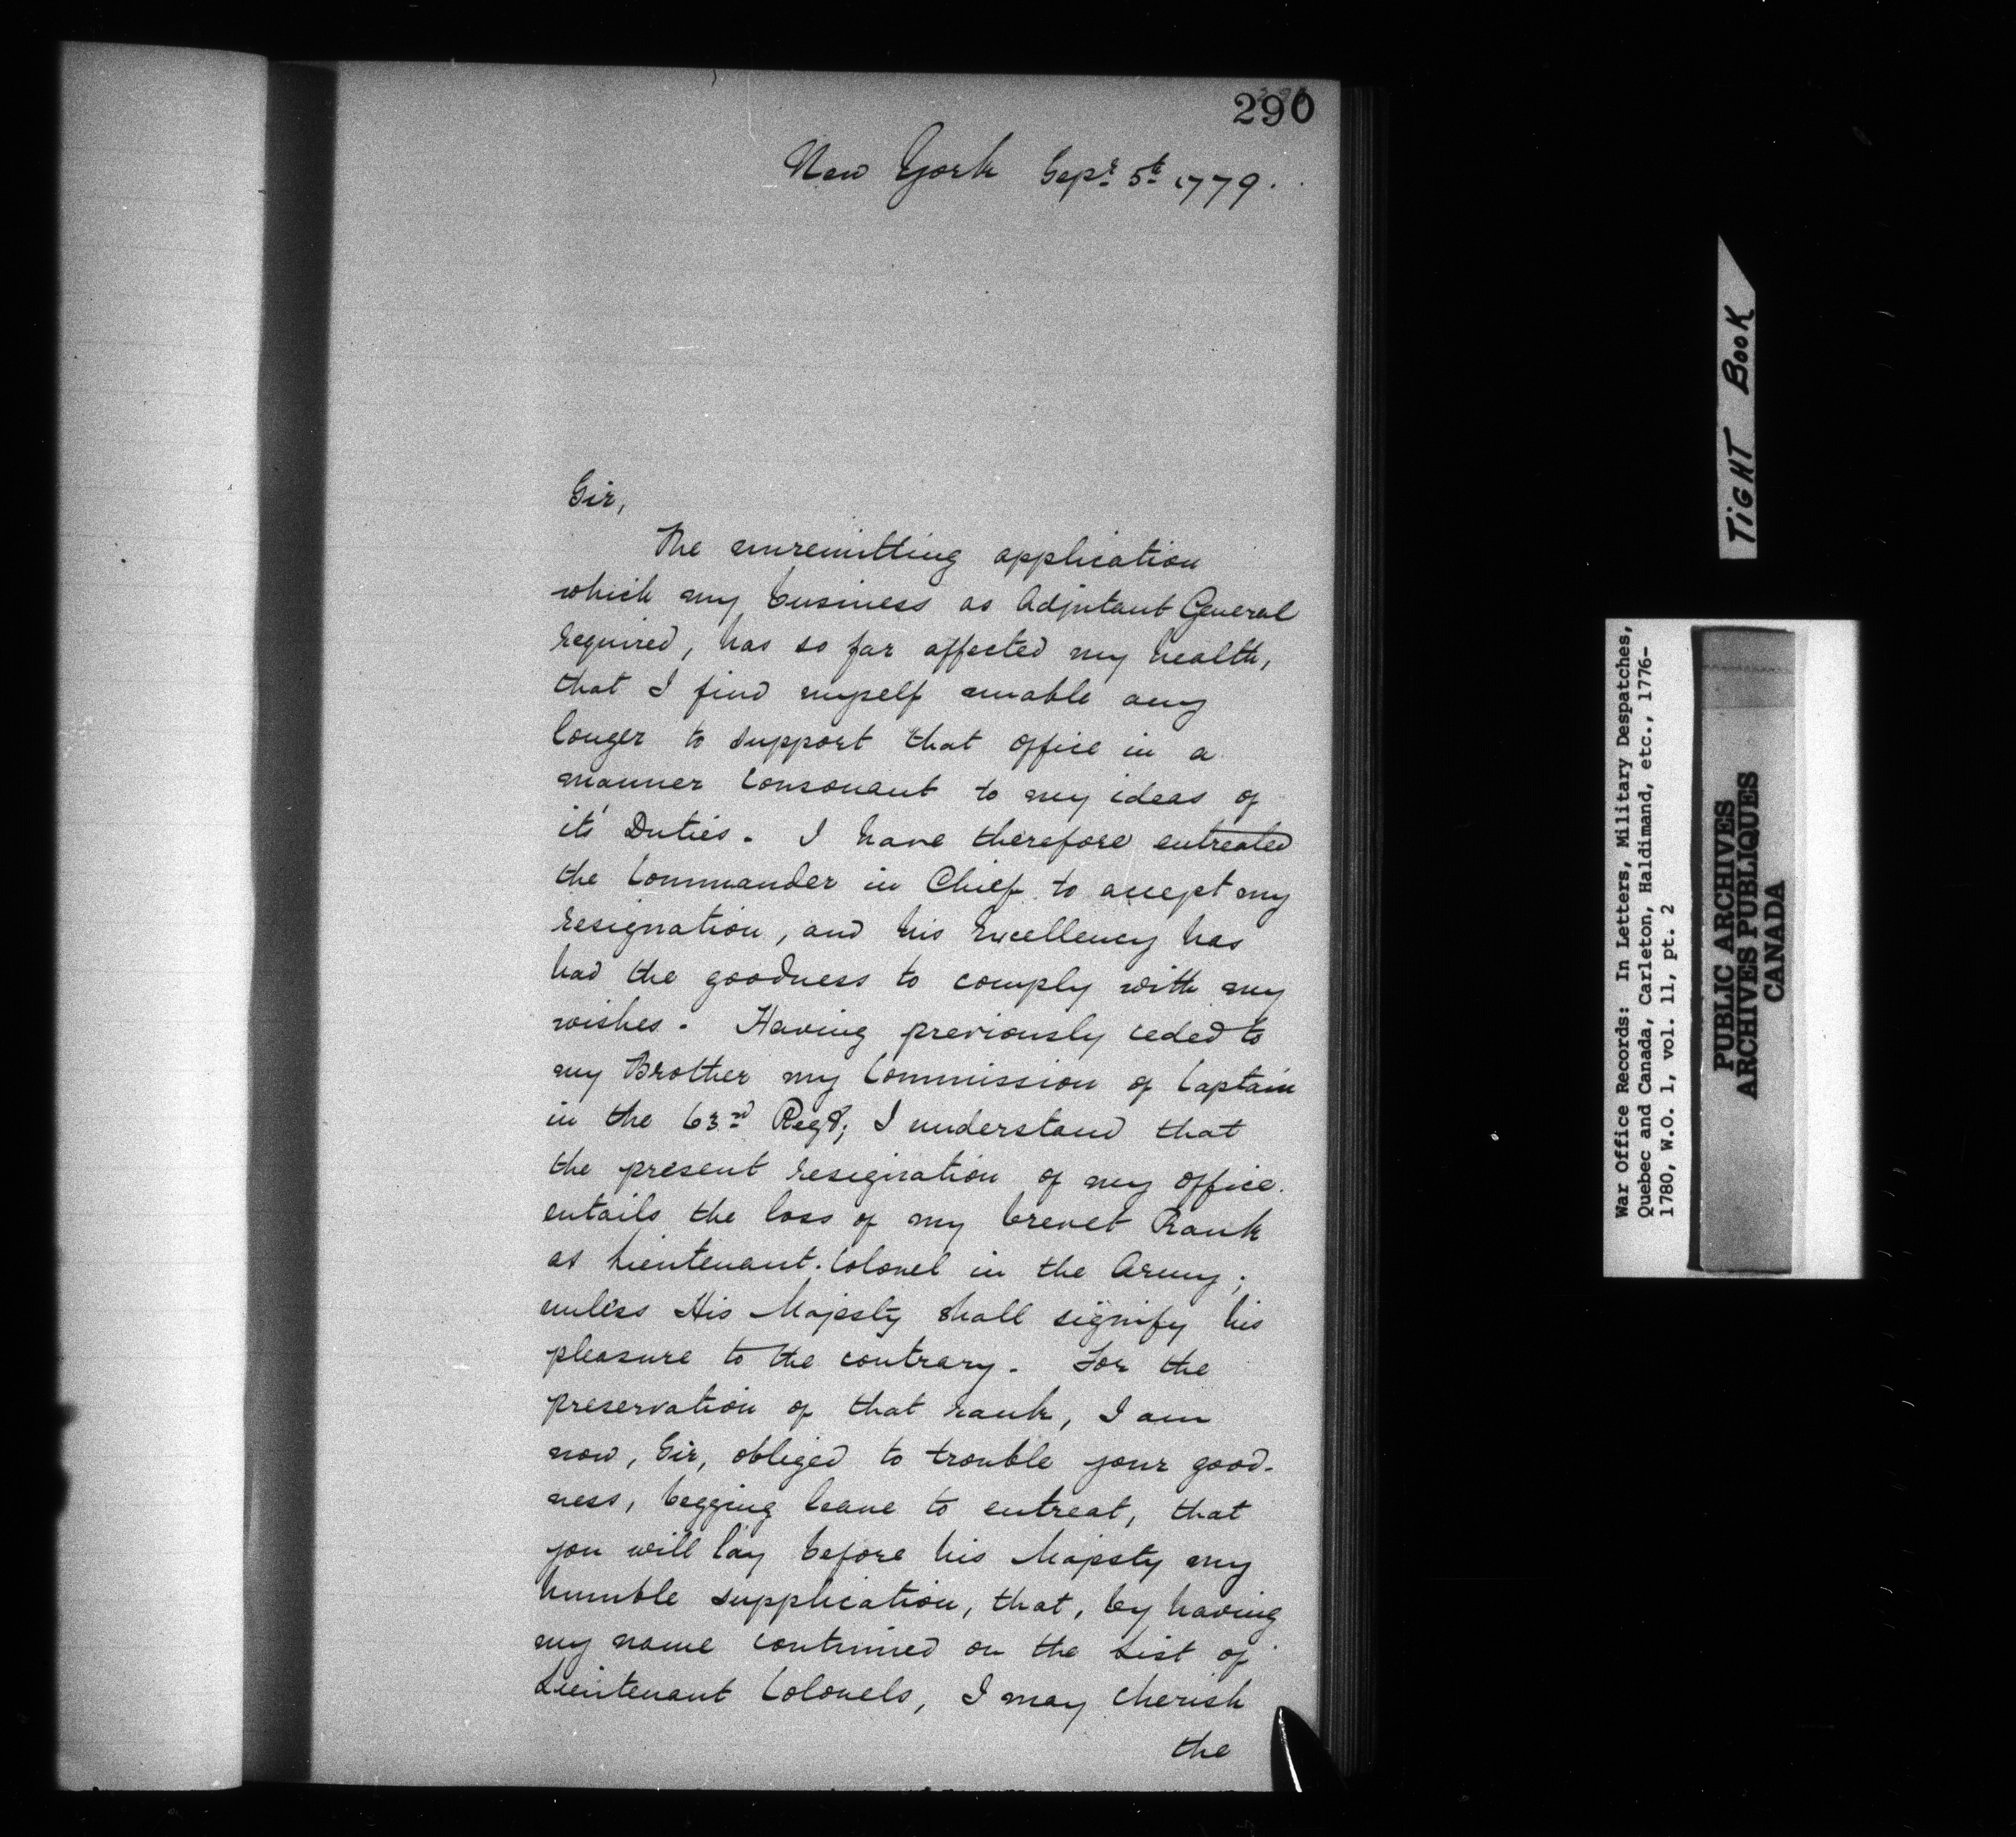 290
New York Sepr 5th 1779.
Sir,
The unremitting application
which my business as Adjutant General
required, has so far affected my health,
that I find myself unable any
longer to support that office in a
manner consonant to my ideas of
its' Duties. I have therefore entreated
the Commander in Chief to accept my
resignation, and his Excellency has
had the goodness to comply with my
wishes. Having previously ceded to
my Brother my Commission of Captain
in the 63rd Regt; I understand that
the present resignation of my office
entails the loss of my brevet Rank
as Lieutenant-Colonel in the Army;
unless His Majesty shall signify his
pleasure to the contrary. For the
preservation of that rank, I am
now, Sir, obliged to trouble your good-
ness, begging leave to entreat, that
you will lay before his Majesty my
humble supplication, that, by having
my name continued on the List of
Lieutenant Colonels, I may cherish
the
TIGHT BOOK
War Office Records: In Letters, Military Despatches,
Quebec and Canada, Carleton, Haldimand, etc., 1776-
1780, W.O. 1, vol. 11, pt. 2
PUBLIC ARCHIVES
ARCHIVES PUBLIQUES
CANADA